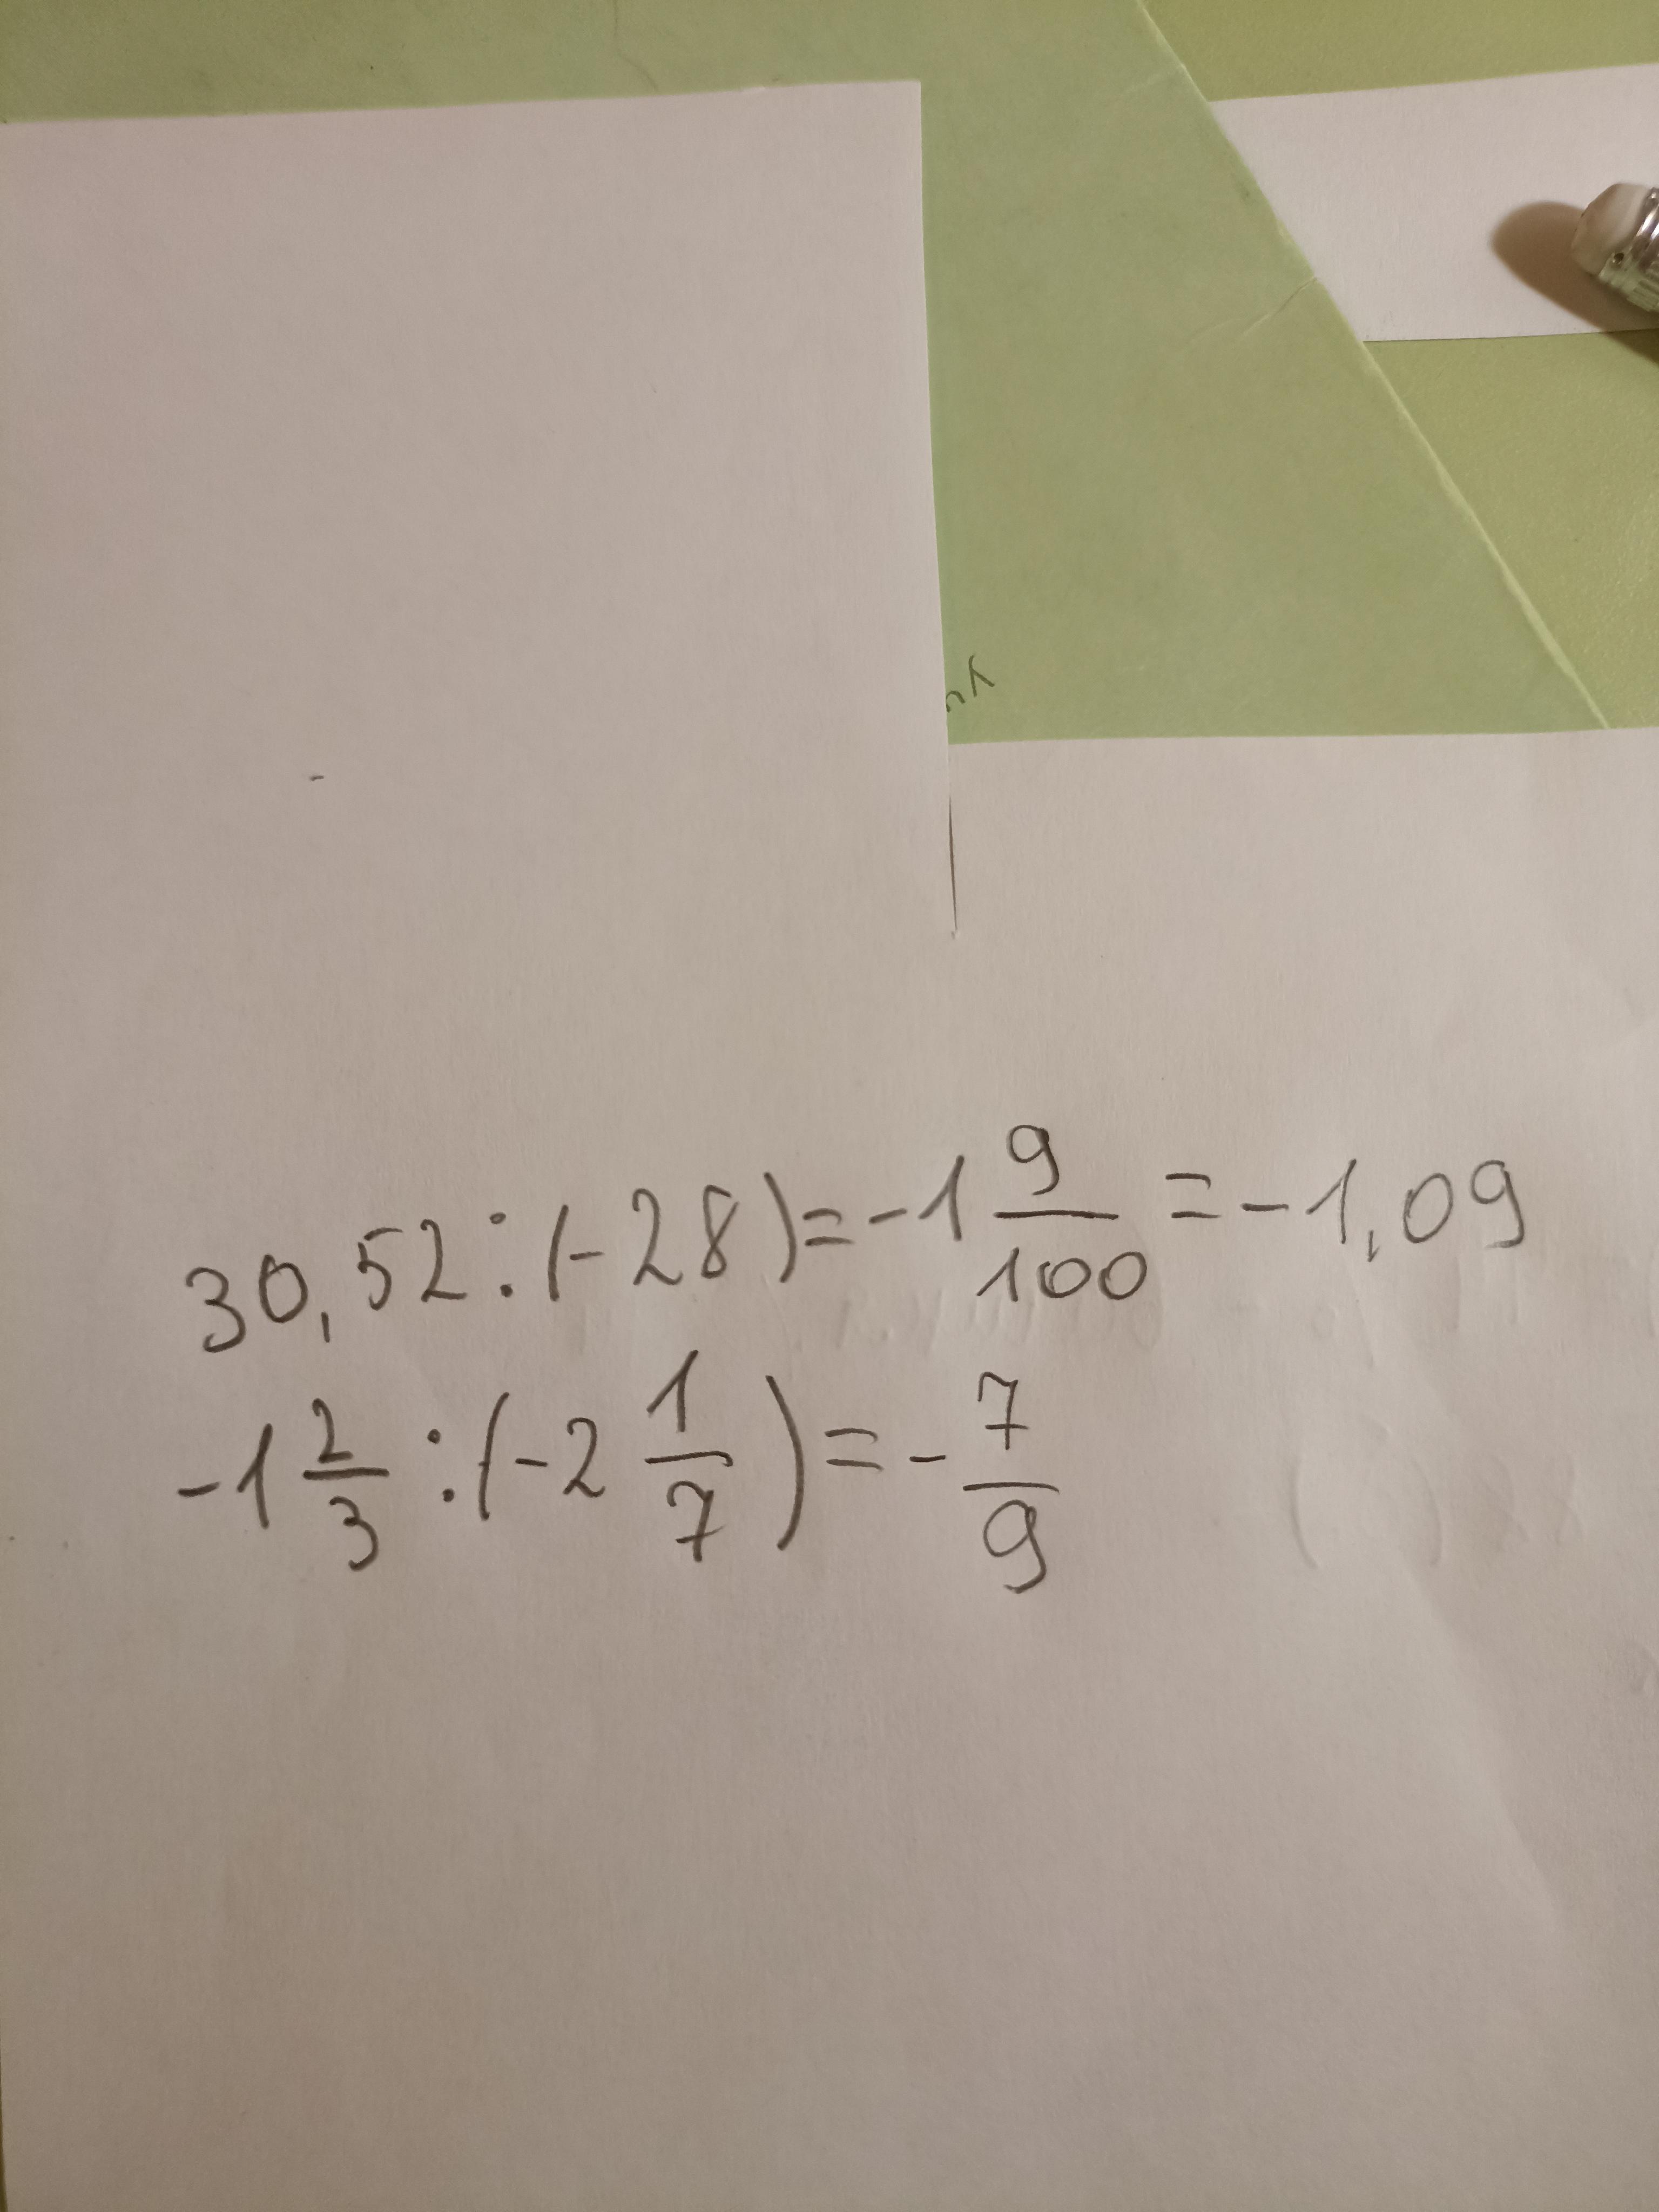 30,52:(-28)=-1 9/100=-1,09
-1 2/3:(-2 1/7)=-7/9